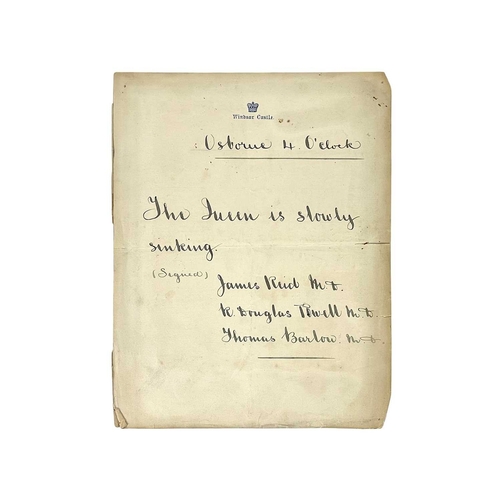 Windsor Castle
Osborne 4 O'clock
The Queen is slowly
sinking.
(Signed)
James Reid M.D.
R. Douglas Powell M.D.
Thomas Barlow. M.D.